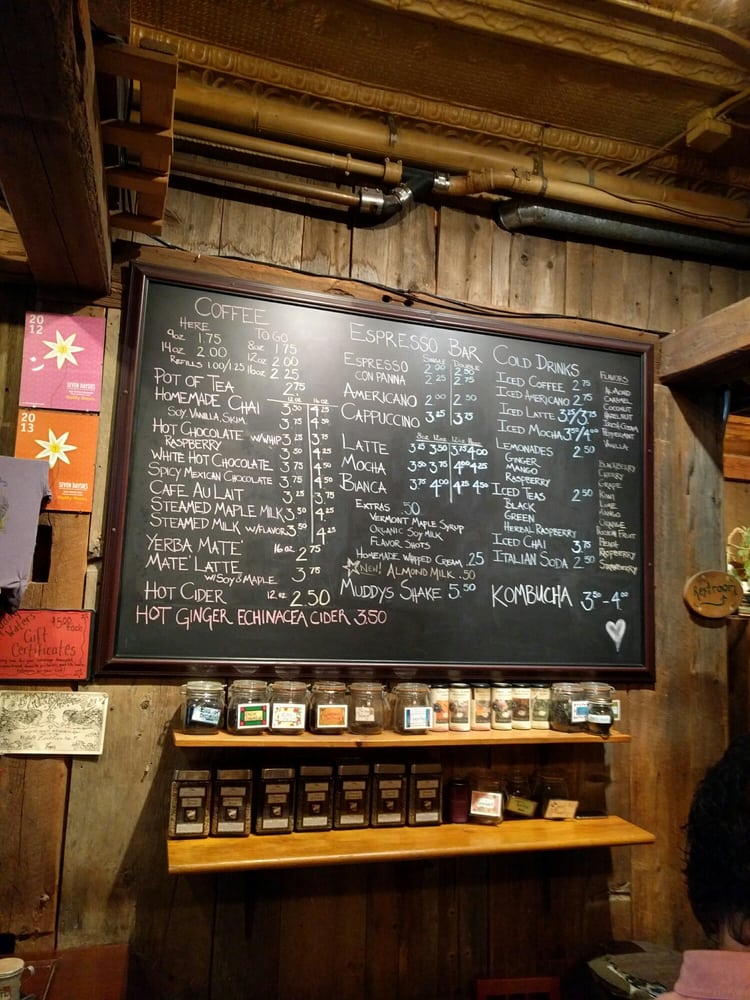 COFFEE
HERE
9oz 1.75
14oz 2.00
REFILLS 1.00/1.25
TO GO
8oz 1.75
12oz 2.00
16oz 2.25
POT OF TEA 2.75
12oz 16oz
HOMEMADE CHAI 3.50 4.25
SOY, VANILLA, SKIM 3.75 4.50
HOT CHOCOLATE W/WHIP 3.25 3.75
RASPBERRY 3.75 4.50
WHITE HOT CHOCOLATE 3.75 4.50
SPICY MEXICAN CHOCOLATE 3.75 4.50
CAFE AU LAIT 3.25 3.75
STEAMED MAPLE MILK 3.50 4.50
STEAMED MILK W/FLAVOR 3.50 4.50
YERBA MATE 16oz 2.75
MATE' LATTE 3.75
W/SOY & MAPLE
HOT CIDER 12oz 2.50
HOT GINGER ECHINACEA CIDER 3.50
ESPRESSO BAR
SINGLE DOUBLE
ESPRESSO 2.00 2.50
CON PANNA 2.25 2.75
AMERICANO 2.00 2.50
CAPPUCCINO 3.25 3.75
8oz 12oz 12oz 16oz
LATTE 3.25 3.50 3.75 4.00
MOCHA 3.50 3.75 4.00 4.25
BIANCA 3.75 4.00 4.25 4.50
EXTRAS .50
VERMONT MAPLE SYRUP
ORGANIC SOY MILK
FLAVOR SHOTS
HOMEMADE WHIPPED CREAM .25
NEW! ALMOND MILK .50
MUDDYS SHAKE 5.50
COLD DRINKS
ICED COFFEE 2.75
ICED AMERICANO 2.75
ICED LATTE 3.25/3.75
ICED MOCHA 3.50/4.00
LEMONADES 2.50
GINGER
MANGO
RASPBERRY
ICED TEAS 2.50
BLACK
GREEN
HERBAL RASPBERRY
ICED CHAI 3.75
ITALIAN SODA 2.50
KOMBUCHA 3.50-4.00
FLAVORS
ALMOND
CARAMEL
COCONUT
HAZELNUT
IRISH CREAM
PEPPERMINT
VANILLA
BLACKBERRY
CHERRY
GRAPE
KIWI
LIME
MANGO
ORANGE
PASSION FRUIT
PEACH
RASPBERRY
STRAWBERRY
20
12
SEVEN DAYSIES
20
13
SEVEN DAYSIES
Waters
$5.00
Each
Gift
Certificates
Restroom